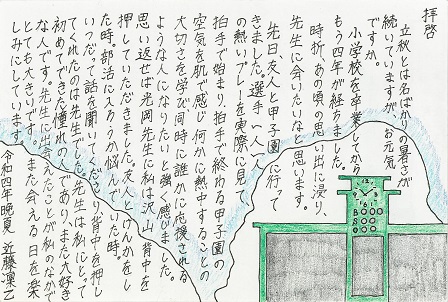 拝啓
立秋とは名ばかりの暑さが
続いていますが、お元気
ですか。
小学校を卒業してから
もう四年が経ちました。
時折、あの頃の思い出に浸り、
先生に会いたいなと思います。
先日友人と甲子園に行って
きました。選手一人一人
の熱いプレーを実際に見て、
拍手で始まり拍手で終わる甲子園の
空気を肌で感じ何かに熱中することの
大切さを学び同時に誰かに応援される
ような人になりたいと強く感じました。
思い返せば光岡先生に私は沢山、背中を
押していただきました。友人とけんかをし
た時。部活に入ろうか悩んでいた時。
いつだって話を聞いてくださり、背中を押し
てくれたのは先生でした。先生は私にとって
初めてできた憧れの人であり、また大好き
な人です。先生に出会えたことが私のなかで
とても大きいです。また会える日を楽
しみにしています。
令和四年晩夏 近藤凜乙